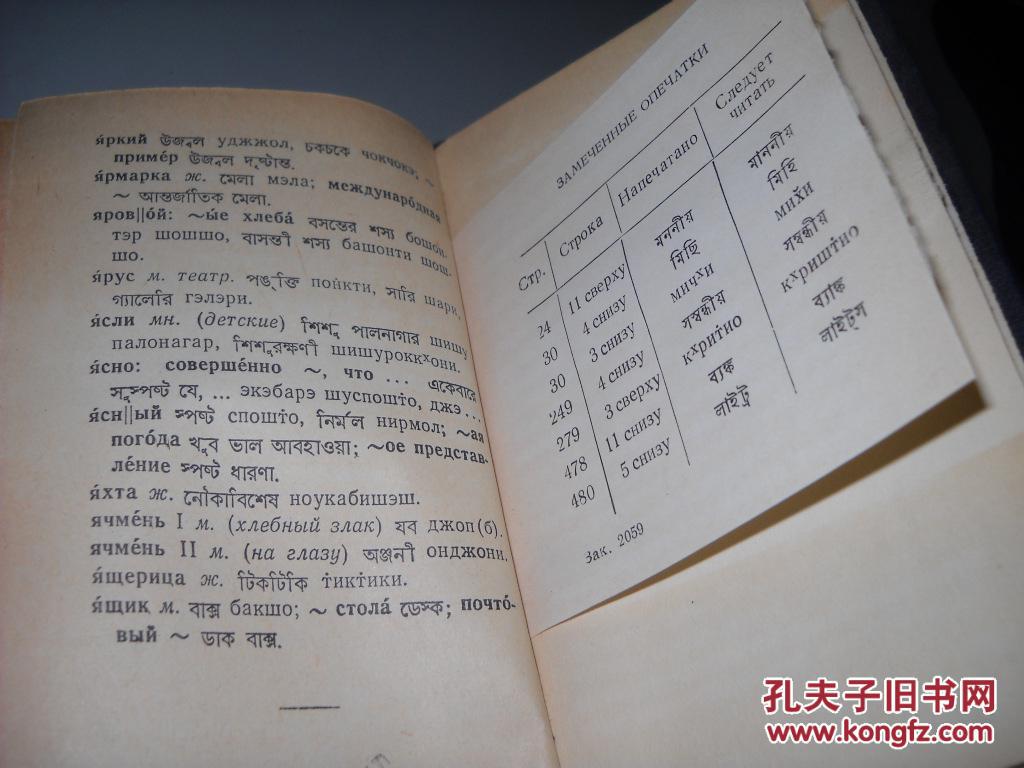 я́ркий উজ্জ্বল уджжол, চকচকে чокчокэ; ~
приме́р উজ্জ্বল দৃষ্টান্ত.
я́рмарка ж. মেলা мэла; междунаро́дная
~ আন্তর্জাতিক মেলা.
яров||о́й: ~ы́е хлеба́ বসন্তের শস্য бошон-
тэр шошшо, বাসন্তী শস্য башонти шош-
шо.
я́рус м. театр. পঙ্‌ক্তি понкти, সারি шари,
গ্যালেরি гэлэри.
я́сли мн. (детские) শিশু পালনাগার шишу
палонагар, শিশুরক্ষণী шишуроккхони.
я́сно: соверше́нно ~, что ... একেবারে
সুস্পষ্ট যে, ... экэбарэ шуспошто, джэ...
я́сн||ый স্পষ্ট спошто, নির্মল нирмол; ~ая
пого́да খুব ভাল আবহাওয়া; ~ое представ-
ле́ние স্পষ্ট ধারণা.
я́хта ж. নৌকাবিশেষ ноукабишэш.
ячме́нь I м. (хлебный злак) যব джоп(б).
ячме́нь II м. (на глазу) অঞ্জনী онджони.
я́щерица ж. টিকটিকি тиктики.
я́щик м. বাক্স бакшо; ~ стола́ ডেস্ক; почто́-
вый ~ ডাক বাক্স.
ЗАМЕЧЕННЫЕ ОПЕЧАТКИ
Стр. Строка Напечатано Следует читать
24 11 сверху মননীয় মাননীয়
30 4 снизу মিহি মিহি
30 3 снизу мичхи михи
249 4 снизу সম্বন্ধীয় সম্বন্ধীয়
279 3 сверху кхритно кхриштно
478 11 снизу ব্যঙ্ক ব্যাঙ্ক
480 5 снизу লাইট্র লাইট্স
Зак. 2059
孔夫子旧书网
www.kongfz.com